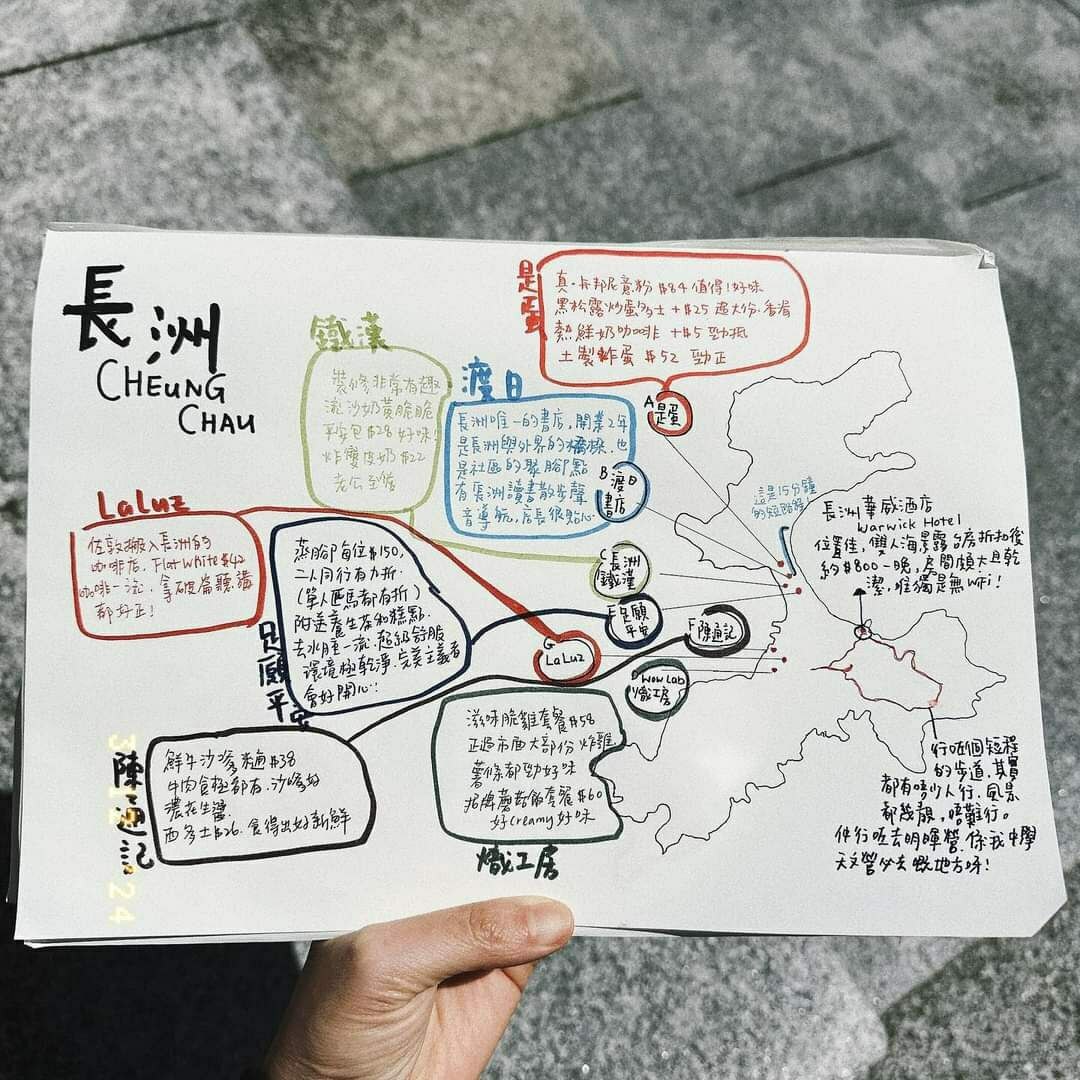 長洲
CHEUNG
CHAU
是蛋
真·卡邦尼意粉 $84 值得!好味
黑松露炒蛋多士 +$25 超大份·香脂
熱鮮奶咖啡 +$5 勁抵
土製炸蛋 $52 勁正
鐵漢
裝修非常有趣
流沙奶黃脆脆
平安包 $28 好味!
炸雙皮奶 $22
渡日
長洲唯一的書店,開業2年
是長洲與外界的橋樑,也
是社區的聚腳點
有長洲讀書散步聲
音導航,店長很貼心
LaLuz
佐敦搬入長洲的
咖啡店, Flat White $42
咖啡一流·拿破崙聽講
都好正!
足願平安
蒸腳每位$150,
二人同行有九折·
(單人匹馬都有折)
附送養生茶和糕點·
去水腫一流·超級舒服
環境極乾淨·完美主義者
會好開心!
陳通記
鮮牛沙嗲麵 $38
牛肉食極都有·沙嗲好
濃花生醬
西多士$26·食得出好新鮮
滋味脆雞套餐 $58
正過市面大部份炸雞·
薯條都勁好味
招牌蘑菇飯套餐 $60
好creamy好味
熾工房
A 是蛋
B 渡日
書店
C 長洲
鐵漢
E 足願
平安
F 陳通記
G
LaLuz
D WOW Lab
熾工房
這是15分鐘
的短路程
長洲華威酒店
Warwick Hotel
位置佳, 雙人海景露台房折扣後
約$800一晚, 房間頗大且乾
潔, 唯獨是無WiFi!
行呢個短程
的步道, 其實
都有唔少人行, 風景
都幾靚, 唔難行。
伸行咗去明暉營, 係我中學
天文營必去嘅地方呀!
24